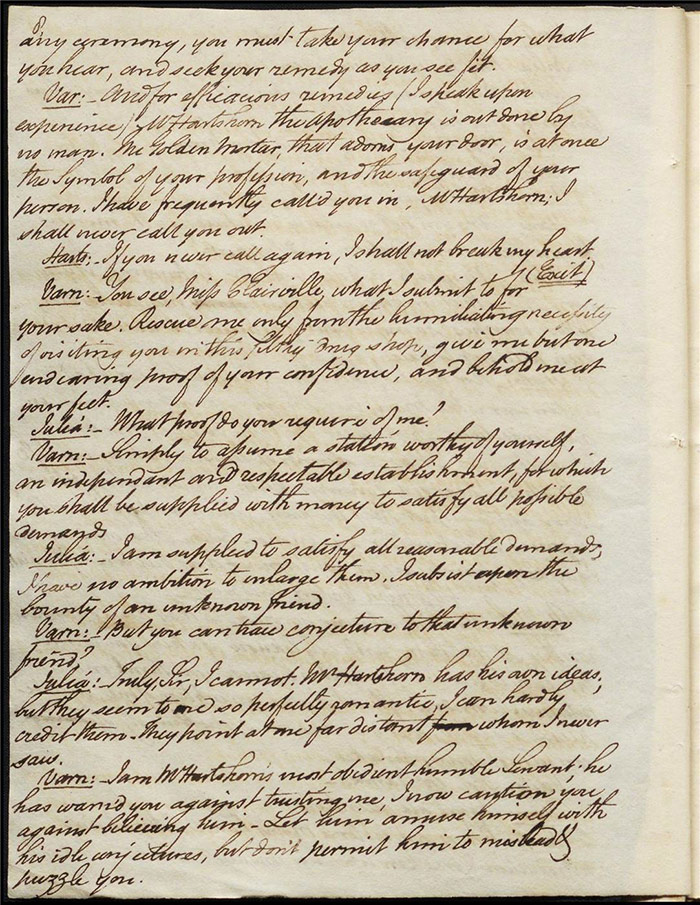 8
any ceremony, you must take your chance for what
you hear, and seek your remedy as you see fit.
Var: - And for efficacious remedies (I speak upon
experience) Mr Hartshorn the apothecary is out done by
no man. The Golden Mortar, that adorns your door, is at once
the Symbol of your profession, and the safeguard of your
person. I have frequently call'd you in, Mr Hartshorn; I
shall never call you out.
Harts: - If you never call again, I shall not break my heart
(Exit)
Varn: - You see, Miss Clairville, what I submit to for
your sake. Rescue me only from the humiliating necessity
of visiting you in this filthy Drug shop, give me but one
endearing proof of your confidence, and behold me at
your feet.
Julia: - What proof do you require of me?
Varn: - Simply to assume a station worthy of yourself,
an independant and respectable establishment, for which
you shall be supplied with money to satisfy all possible
demands
Julia: - I am supplied to satisfy all reasonable demands,
I have no ambition to enlarge them. I subsist upon the
bounty of an unknown friend.
Varn: - But you can trace conjecture to that unknown
friend?
Julia: - Truly, Sir, I cannot. Mr Hartshorn has his own ideas,
but they seem to me so perfectly romantic, I can hardly
credit them - They point at one far distant whom I never
saw.
Varn: - I am Mr Hartshorn's most obedient humble Servant; he
has warn'd you against trusting me, I now caution you
against believing him - Let him amuse himself with
his idle conjectures, but don't permit him to mislead &
puzzle you.